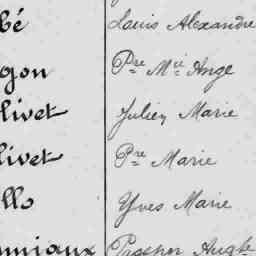 bé Louis Alexandre
gon Pre Mie Ange
livet Julien Marie
livet Pre Marie
llo Yves Marie
Prosper Augte